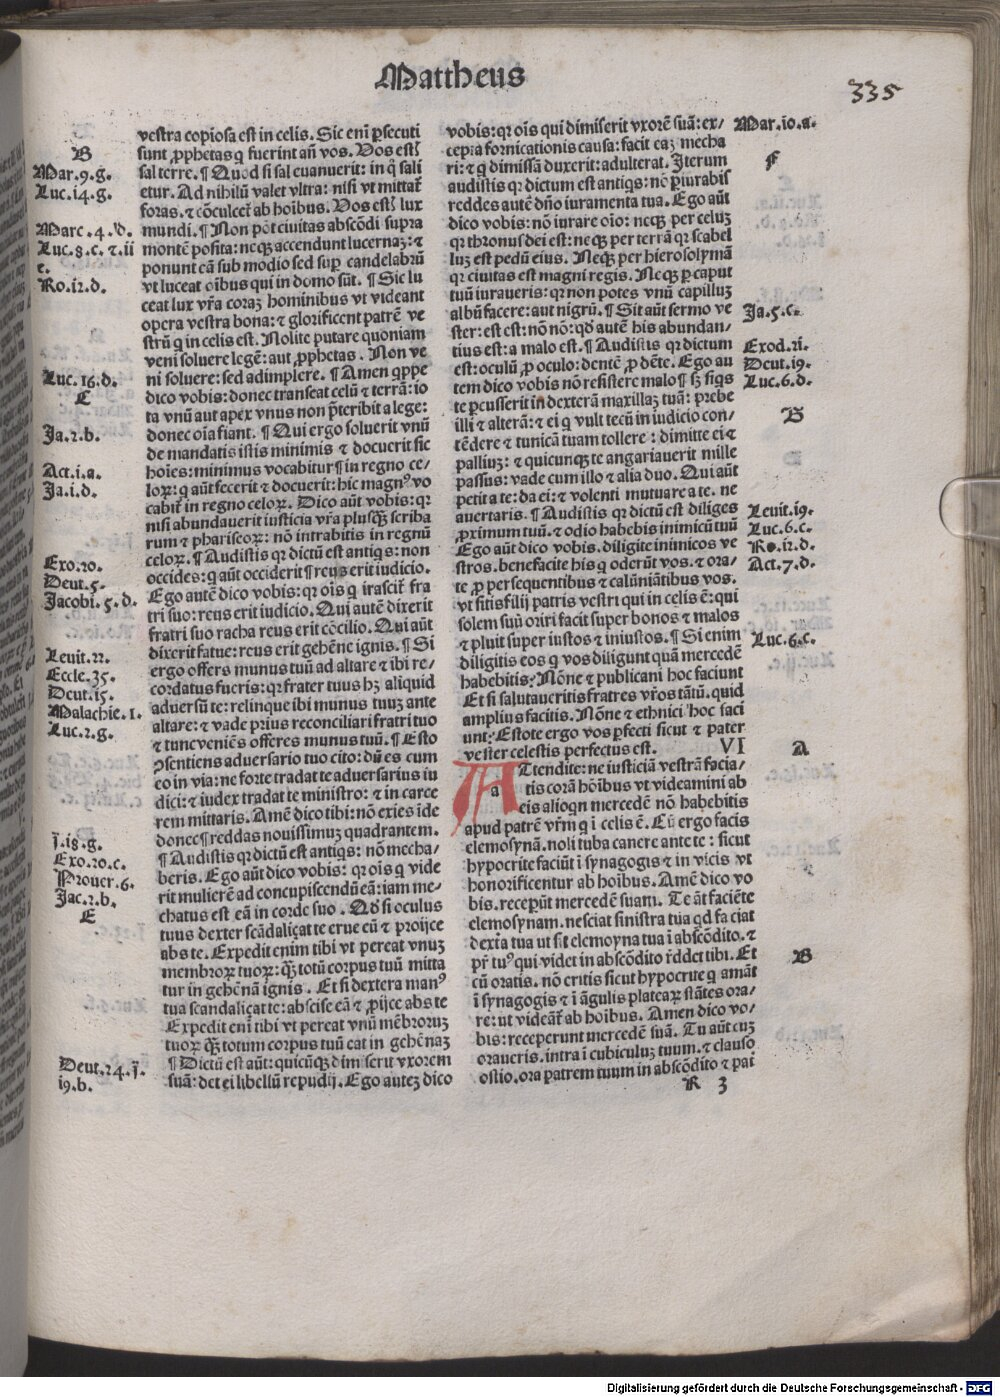 Mattheus
335
vestra copiosa est in celis. Sic eni ̄ p̱secuti
sunt ꝓphetas q̄ fuerint an̄ vos. Vos esti᷒
sal terre. ¶ Quod si sal euanuerit: in q̄ sali
etur. Ad nihilū valet vltra: nisi vt mittat᷒
foras. ⁊ cōculcet᷒ ab hoībus. Vos esti᷒ lux
mundi. ¶ Non pōt ciuitas abscōdi supra
montē posita: neqꝫ accendunt lucernaꝫ: ⁊
ponunt eā sub modio sed sup̱ candelabrū
vt luceat oībus qui in domo sūt. ¶ Sic lu
ceat lux vr̄a coraꝫ hominibus vt videant
opera vestra bona: ⁊ glorificent patrē ve
strū q̄ in celis est. Nolite putare quoniam
veni soluere legē: aut ꝓphetas. Non ve
ni soluere: sed adimplere. ¶ Amen q̄ppe
dico vobis: donec transeat celū ⁊ terrā: io
ta vnū aut apex vnus non p̄teribit a lege:
donec oīa fiant. ¶ Qui ergo soluerit vnū
de mandatis istis minimis ⁊ docuerit sic
hoīes: minimus vocabitur¶in regno ce/
loꝝ: q̄ aūt fecerit ⁊ docuerit: hic magnꝰ vo
cabit᷒ in regno celoꝝ. Dico aūt vobis: qꝛ
nisi abundauerit iusticia vr̄a plusqꝫ̄ scriba
rum ⁊ phariseoꝝ: nō intrabitis in regnū
celoꝝ. ¶ Audistis qꝛ dictū est antiq̄s: non
occides: q̄ aūt occiderit¶reus erit iudicio.
Ego autē dico vobis: qꝛ oīs q̄ irascit᷒ fra
tri suo: reus erit iudicio. Qui autē dixerit
fratri suo racha reus erit cōcilio. Qui aūt
dixerit fatue: reus erit gehēne ignis. ¶ Si
ergo offers munus tuū ad altare ⁊ ibi re/
cordatus fueris: qꝛ frater tuus hꝫ aliquid
adversū te: relinque ibi munus tuuꝫ ante
altare: ⁊ vade prius reconciliari fratri tuo
⁊ tunc veniēs offeres munus tuū. ¶ Esto
ꝯsentiens adversario tuo cito: dū es cum
eo in via: ne forte tradat te adversarius iu
dici: ⁊ iudex tradat te ministro: ⁊ in carce
rem mittaris. Amē dico tibi: nō exies īde
donec¶reddas nouissimuꝫ quadrantem.
¶ Audistis qꝛ dictū est antiq̄s: nō mecha/
beris. Ego aūt dico vobis: qꝛ oīs q̄ vide
rit mulierē ad concupiscendū eā: iam me/
chatus est eā in corde suo. Qd̄ si oculus
tuus dexter scādaliçat te erue eū ⁊ proijce
abs te. Expedit enim tibi vt pereat vnuꝫ
membroꝝ tuoꝝ: qꝫ̄ totū corpus tuū mitta
tur in gehēnā ignis. Et si dextera manꝰ
tua scandaliçat te: abscise eā ⁊ ꝓijce abs te
Expedit eni ̄ tibi vt pereat vnū mēbroruꝫ
tuoꝝ qꝫ̄ totum corpus tuū eat in gehēnaꝫ
¶ Dictū est aūt: quicūqꝫ dimiserit vxorem
suā: det ei libellū repudij. Ego auteꝫ dico
B
Mar.9.g.
Luc.14.g.
Marc.4.d.
Luc.8.c.⁊.ii
e.
Ro.12.d.
Luc.16.d.
C
Ja.2.b.
Act.i.a.
Ja.i.d.
Exo.20.
Deut.5.
Jacobi.5.d.
Leuit.22.
Eccle.35.
Deut.15.
Malachie.1.
Luc.2.g.
j.18.g.
Exo.20.c.
Prouer.6.
Jac.2.b.
E
Deut.24.j.
19.b.
vobis: qꝛ oīs qui dimiserit vxorē suā: ex/
cepta fornicationis causa: facit eaꝫ mecha
ri: ⁊ q̄ dimissā duxerit: adulterat. Iterum
audistis qꝛ dictum est antiq̄s: nō p̱iurabis
reddes autē dn̄o iuramenta tua. Ego aūt
dico vobis: nō iurare oīo: neqꝫ per celuꝫ
qꝛ thronus dei est: neqꝫ per terrā qꝛ scabel
luꝫ est pedū eius. Neqꝫ per hierosolymā
qꝛ ciuitas est magni regis. Neqꝫ p̱ caput
tuū iuraueris: qꝛ non potes vnū capilluꝫ
albū facere: aut nigrū. ¶ Sit aūt sermo ve
ster: est est: nō nō: qd̄ autē his abundan/
tius est: a malo est. ¶ Audistis qꝛ dictum
est: oculū ꝓ oculo: dentē ꝓ dēte. Ego au
tem dico vobis nō resistere malo¶sꝫ siq̄s
te p̱cusserit in dexterā maxillaꝫ tuā: prebe
illi ⁊ alterā: ⁊ ei q̄ vult tecū in iudicio con/
tēdere ⁊ tunicā tuam tollere: dimitte ei ⁊
palliuꝫ: ⁊ quicunqꝫ te angariauerit mille
passus: vade cum illo ⁊ alia duo. Qui aūt
petit a te: da ei: ⁊ volenti mutuare a te. ne
auertaris. ¶ Audistis qꝛ dictū est diliges
ꝓximum tuū. ⁊ odio habebis inimicū tuū
Ego aūt dico vobis. diligite inimicos ve
stros. benefacite his q̄ oderūt vos. ⁊ ora/
te ꝓ persequentibus ⁊ calūniātibus vos.
vt sitis filij patris vestri qui in celis ē: qui
solem suū oriri facit super bonos ⁊ malos
⁊ pluit super iustos ⁊ iniustos. ¶ Si enim
diligitis eos q̄ vos diligunt quā mercedē
habebitis? Nōne ⁊ publicani hoc faciunt
Et si salutaueritis fratres vr̄os tātū. quid
amplius facitis. Nōne ⁊ ethnici hoc faci
unt? Estote ergo vos p̱fecti sicut ⁊ pater
vester celestis perfectus est. VI
ATtendite: ne iusticiā vestrā facia/
a tis corā hōibus vt videamini ab
eis alioqn mercedē nō habebitis
apud patrē vr̄m q̄ ī celis ē. Cū ergo facis
elemosynā. noli tuba canere ante te: sicut
hypocrite faciūt ī synagogis ⁊ in vicis vt
honorificentur ab hoībus. Amē dico vo
bis. recep̱ūt mercedē suam. Te āt faciēte
elemosynam. nesciat sinistra tua qd faciat
dext̄a tua ut sit elemoyna tua ī abscōdito. ⁊
pr̄ tuꝰ qui videt in abscōdito r̄ddet tibi. Et
cū oratis. nō eritis sicut hypocrite q̄ amāt
ī synagogis ⁊ ī āgulis plateaꝝ stātes ora/
re: ut videāt᷒ ab hoībus. Amen dico vo/
bis: receperunt mercedē suā. Tu aūt cuꝫ
oraueris. intra ī cubiculuꝫ tuum. ⁊ clauso
ostio. ora patrem tuum in abscōdito ⁊ pat᷒
Mar.10.a.
F
Ja.5.c.
Exod.21.
Deut.19.
Luc.6.d.
B
Leuit.19.
Luc.6.c.
Ro.12.d.
Act.7.d.
Luc.6.c.
A
B
R 3
Digitalisierung gefördert durch die Deutsche Forschungsgemeinschaft - DFG